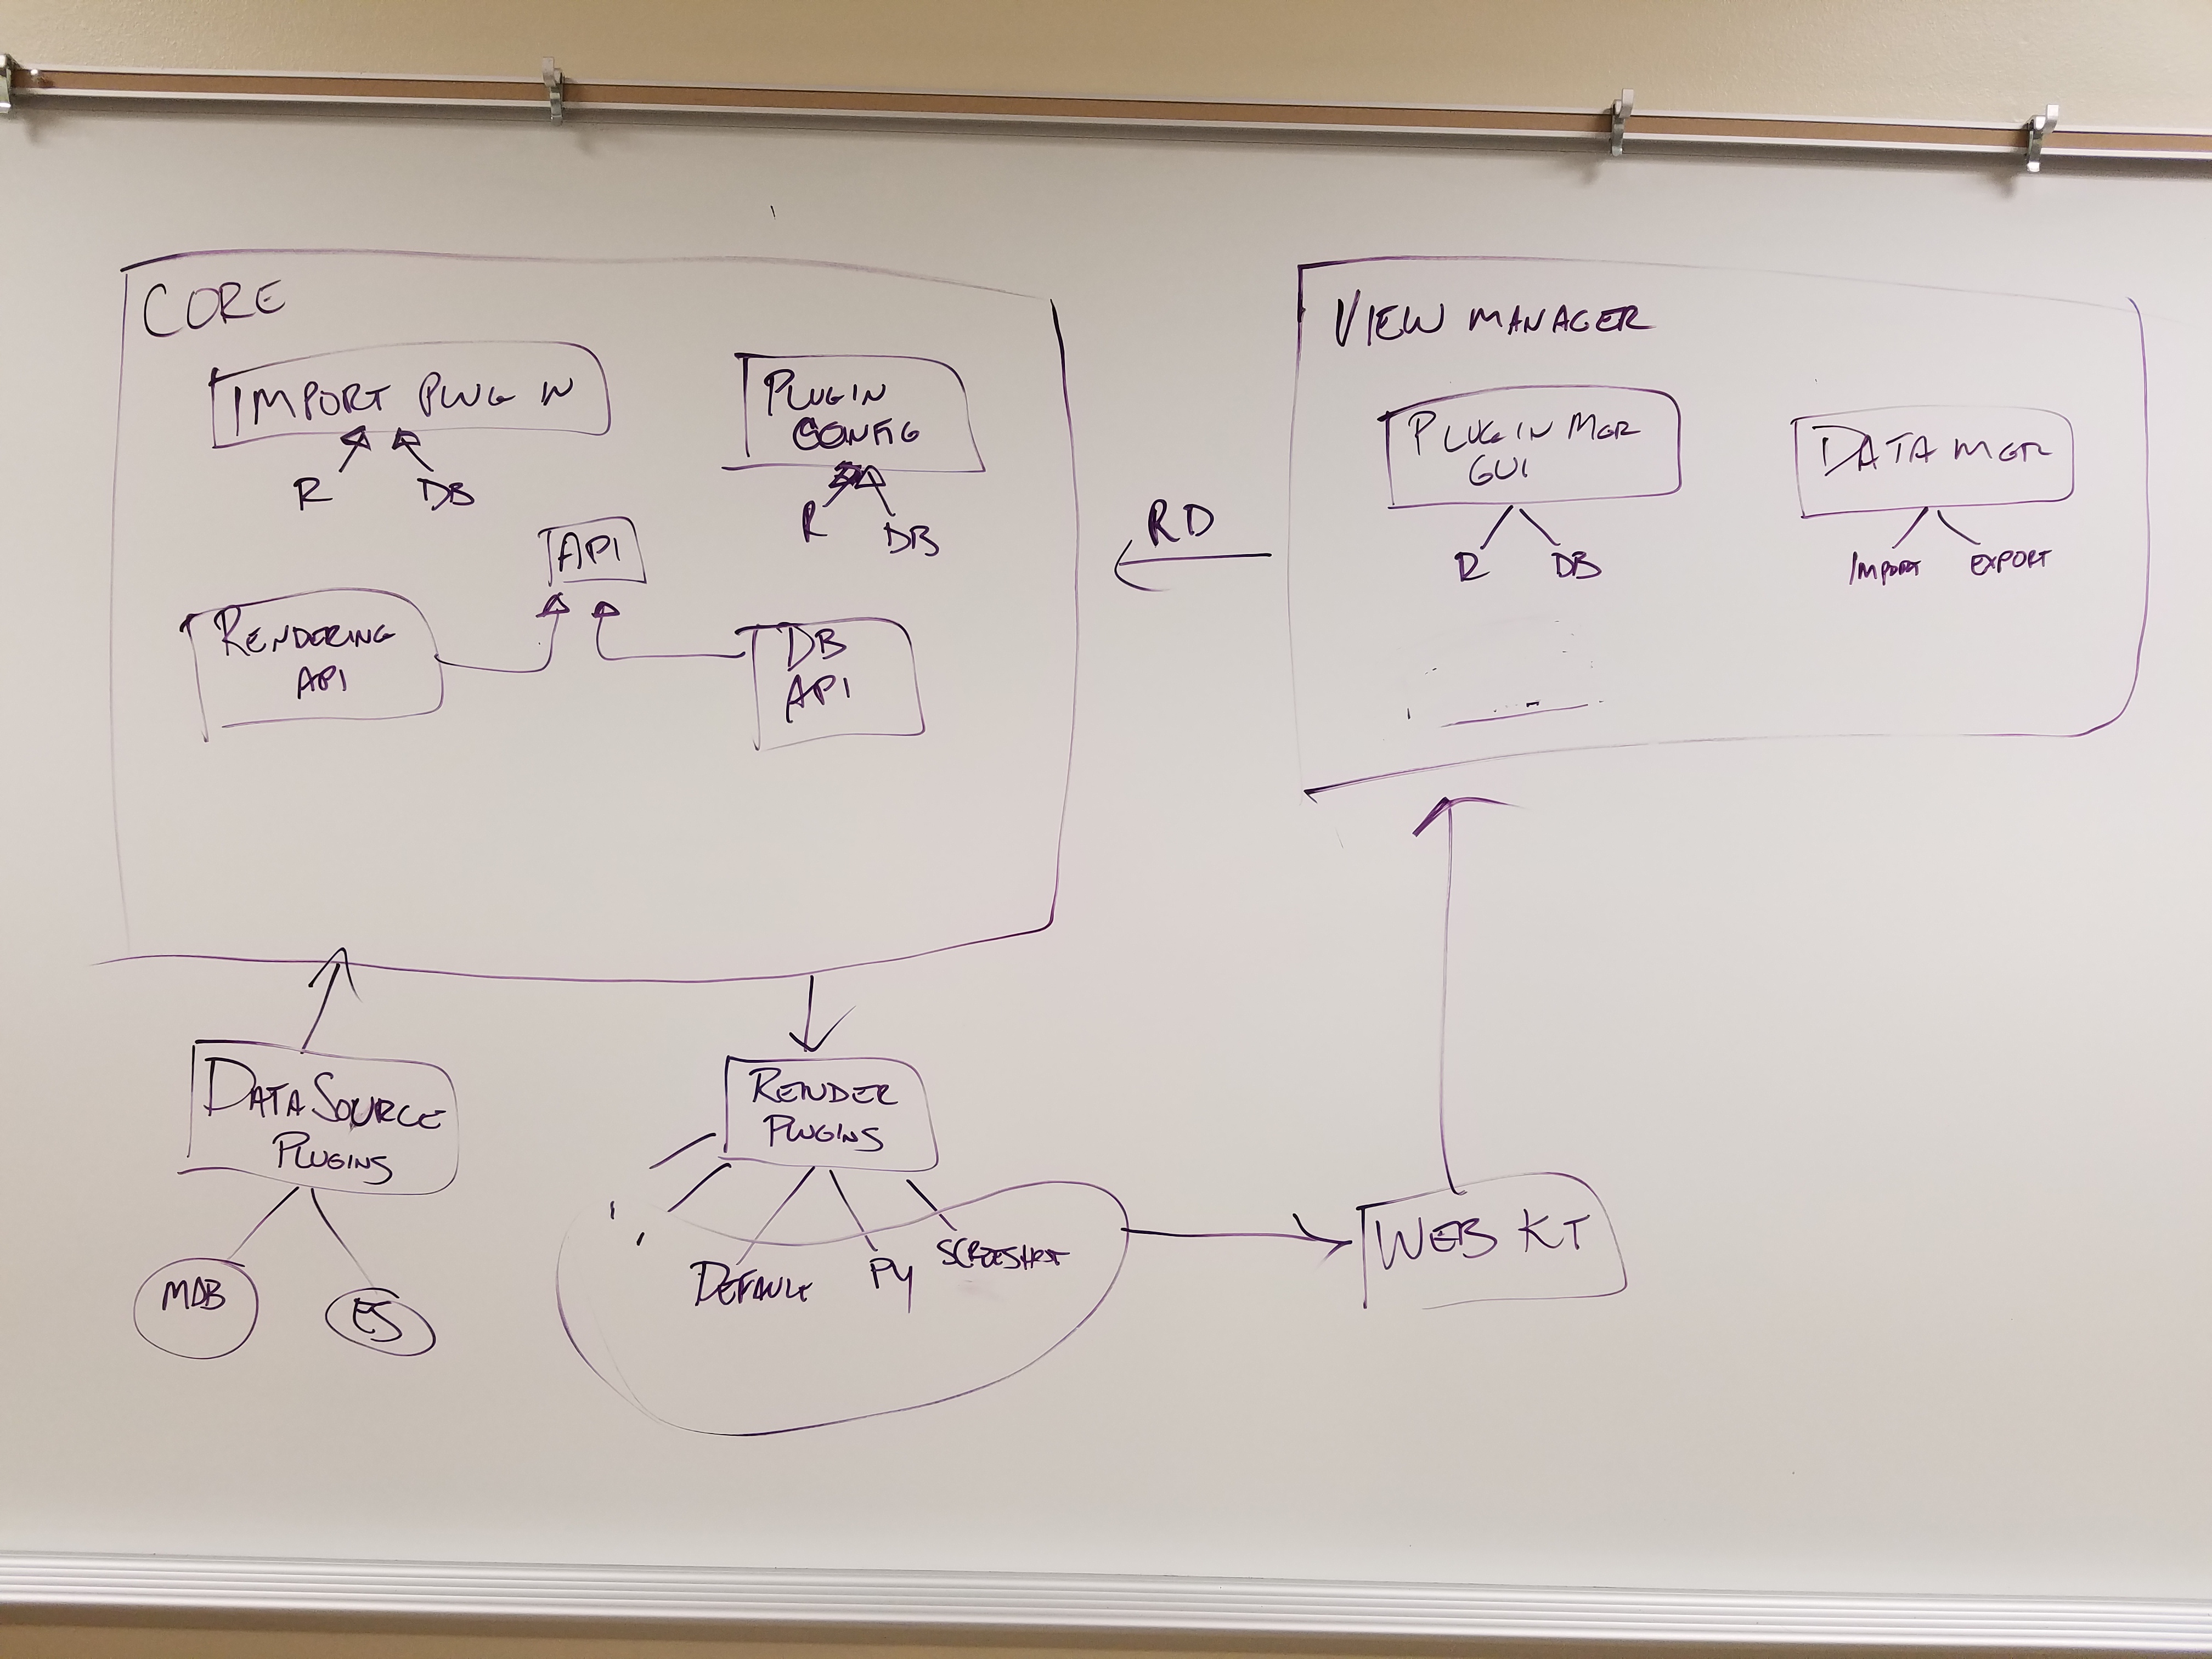 CORE
IMPORT PLUGIN
R DB
PLUGIN
CONFIG
R DB
API
RENDERING
API
DB
API
RD
VIEW MANAGER
PLUGIN MGR
GUI
R DB
DATA MGR
IMPORT EXPORT
DATA SOURCE
PLUGINS
MDB ES
RENDER
PLUGINS
DEFAULT PY
WEB KT